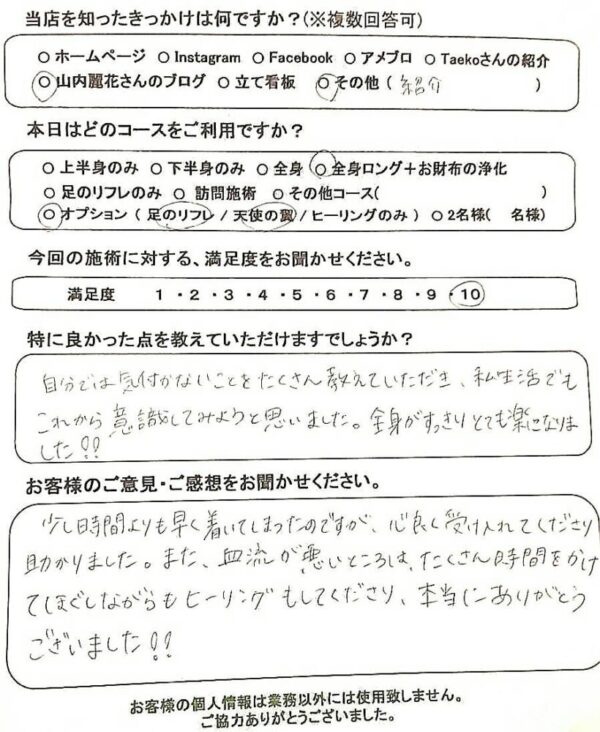 当店を知ったきっかけは何ですか？(※複数回答可)
○ ホームページ ○ Instagram ○ Facebook ○ アメブロ ○ Taekoさんの紹介
○ 山内麗花さんのブログ ○ 立て看板 ○ その他 ( 紹介 )
本日はどのコースをご利用ですか？
○ 上半身のみ ○ 下半身のみ ○ 全身 ○ 全身ロング＋お財布の浄化
○ 足のリフレのみ ○ 訪問施術 ○ その他コース( )
○ オプション ( 足のリフレ / 天使の翼 / ヒーリングのみ ) ○ 2名様( 名様)
今回の施術に対する、満足度をお聞かせください。
満足度 1 ・ 2 ・ 3 ・ 4 ・ 5 ・ 6 ・ 7 ・ 8 ・ 9 ・ 10
特に良かった点を教えていただけますでしょうか？
自分では気付かないことをたくさん教えていただき、私生活でも
これから意識してみようと思いました。全身がすっきりとても楽になりま
した!!
お客様のご意見・ご感想をお聞かせください。
少し時間よりも早く着いてしまったのですが、心良く受け入れてくださり
助かりました。また、血流が悪いところは、たくさん時間をかけ
てほぐしながらもヒーリングもしてくださり、本当にありがとう
ございました!!
お客様の個人情報は業務以外には使用致しません。
ご協力ありがとうございました。